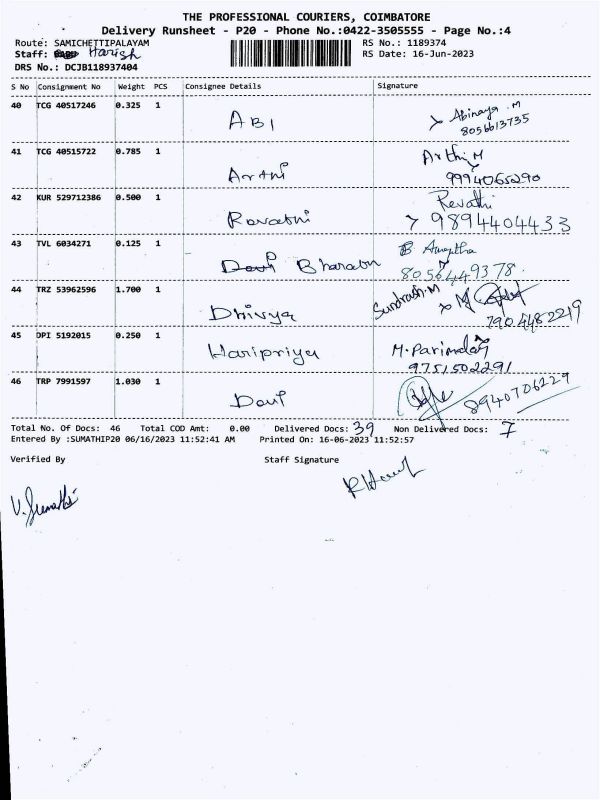 THE PROFESSIONAL COURIERS, COIMBATORE
Delivery Runsheet - P20 - Phone No.:0422-3505555 - Page No.:4
Route: SAMICHETTIPALAYAM RS No.: 1189374
Staff: Harish RS Date: 16-Jun-2023
DRS No.: DCJB118937404
S No Consignment No Weight PCS Consignee Details Signature
40 TCG 40517246 0.325 1 ABI Abinaya .M
8056613735
41 TCG 40515722 0.785 1 Arthi Arthi M
9994065290
42 KUR 529712386 0.500 1 Revathi Revathi
9894404433
43 TVL 6034271 0.125 1 Bharath
8056449378.
44 TRZ 53962596 1.700 1 Dhivya
7904482219
45 DPI 5192015 0.250 1 Haripriya M. Parimalan
9751502291
46 TRP 7991597 1.030 1 8940706229
Total No. Of Docs: 46 Total COD Amt: 0.00 Delivered Docs: 39 Non Delivered Docs: 7
Entered By :SUMATHIP20 06/16/2023 11:52:41 AM Printed On: 16-06-2023 11:52:57
Verified By Staff Signature
V. Sumathi